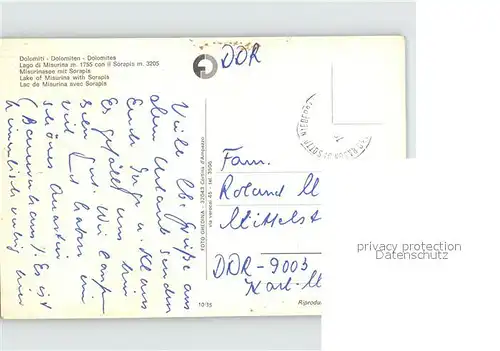 Dolomiti - Dolomiten - Dolomites
Lago di Misurina m. 1755 con il Sorapis m. 3205
Misurinasee mit Sorapis
Lake of Misurina with Sorapis
Lac de Misurina avec Sorapis
DDR
Viele lb. Grüße aus
dem Urlaub senden
Euch Inge u. Klaus
Es gefällt uns hier
sehr gut. Wir
und haben ein
schönes Quartier
Es ist
himmlisch ruhig hier
FOTO GHEDINA - 32043 Cortina d'Ampezzo
via verocai 45 - tel. 3506
Fam.
Roland M
Mittelst
DDR-9003
Karl-M
10/35
Riprodu
privacy protection
Datenschutz